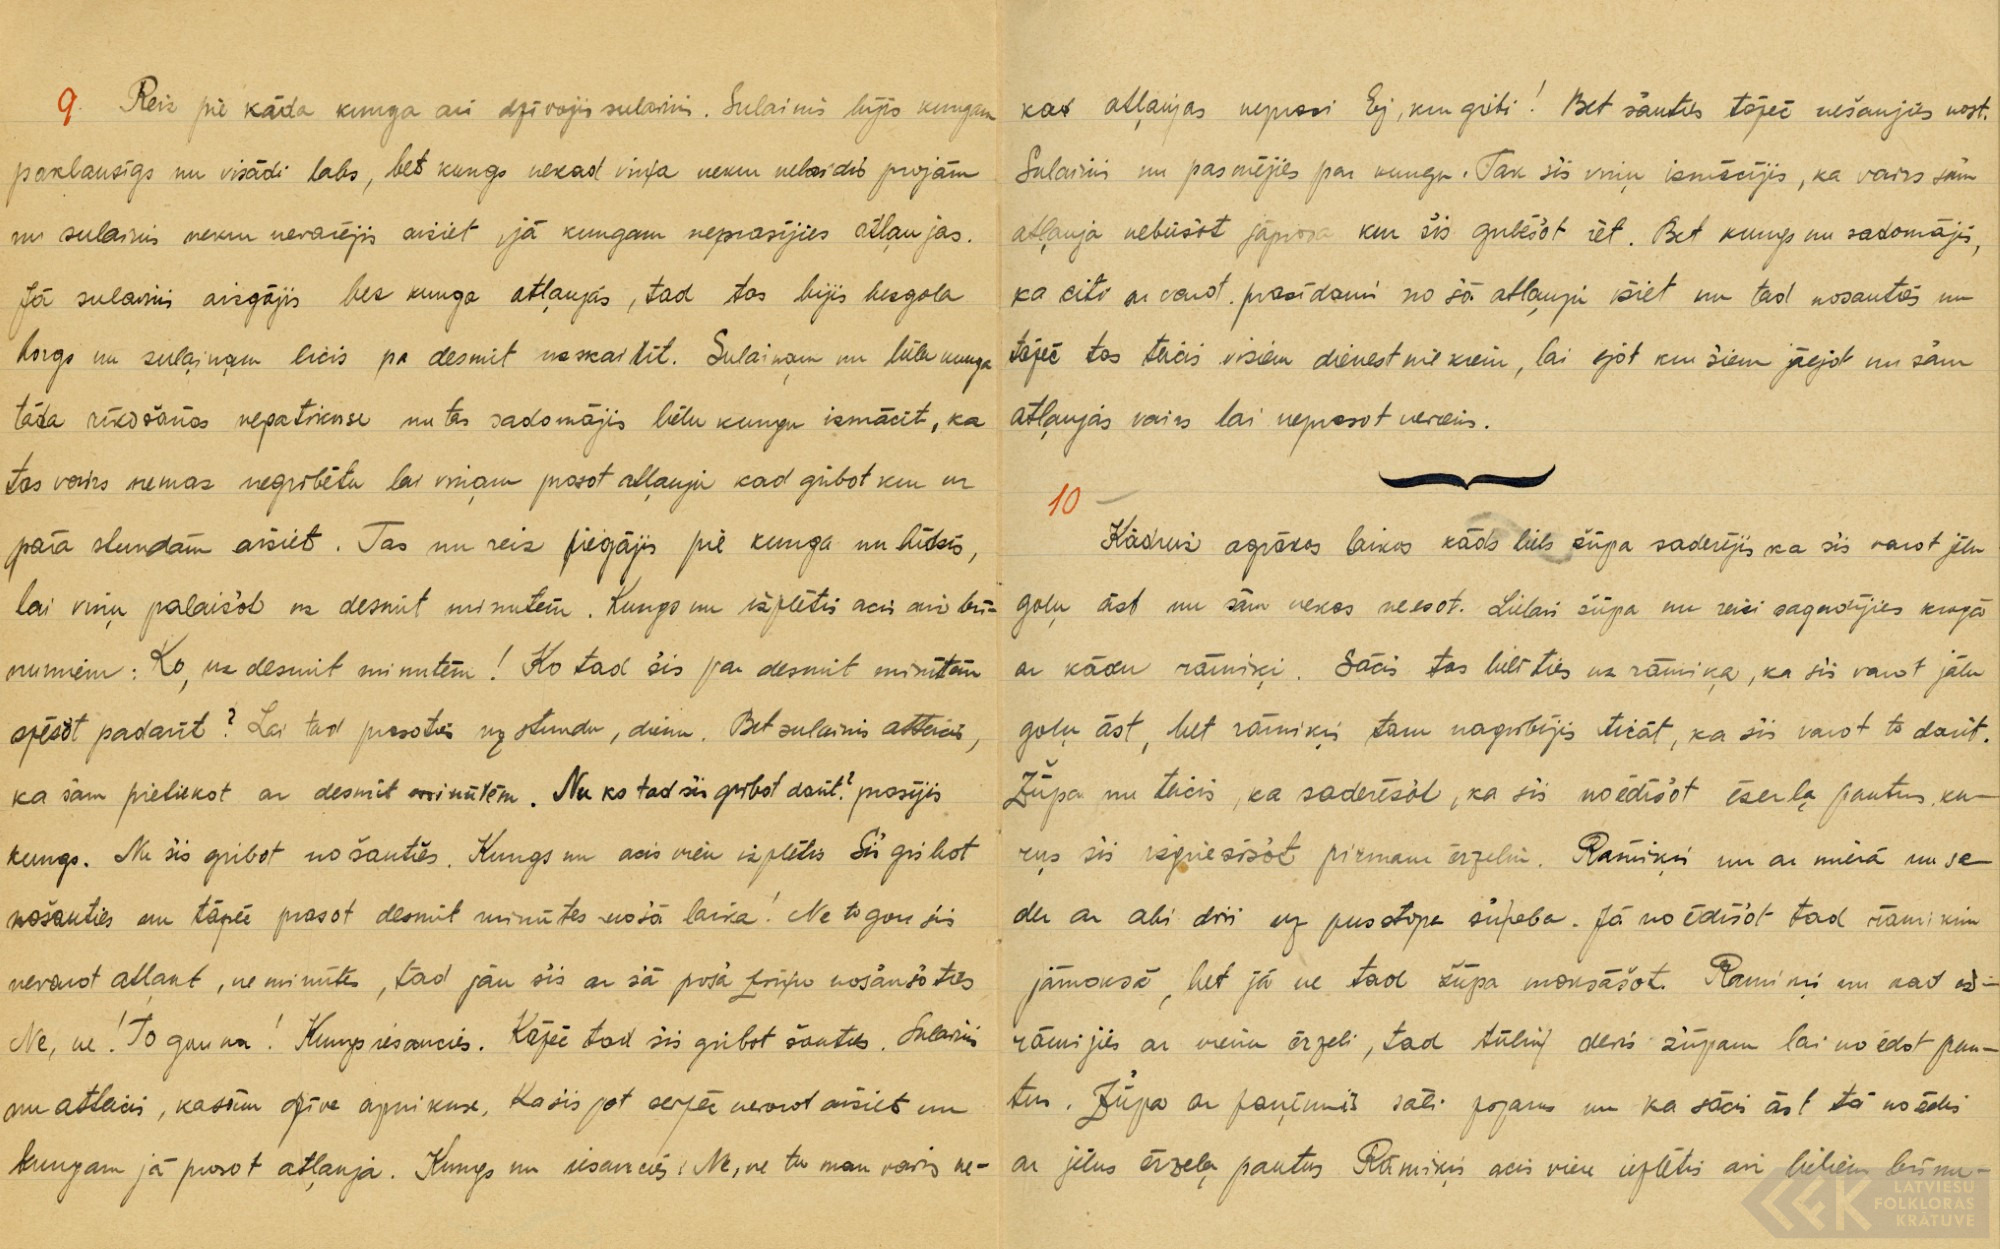 9. Reiz pie kāda kunga ari dzīvojis sulainis. Sulainis bijis kungam
paklausīgs un visādi labs, bet kungs nekad viņa nekur nelaidis projām
un sulainis nekur nevarējis aiziet, jā kungam neprasījies atļaujas.
Jā sulainis aizgājis bez kunga atļaujās, tad tas bijis bezgala
bargs un sulaiņam licis pa desmit noskaitīt. Sulaiņam nu liela kunga
tāda rīkošanās nepatikuse un tas sadomājis lielu kungu izmācīt, ka
tas vairs nemaz negribētu lai viņam prasot atļauju kad gribot kur uz
pāra stundām aiziet. Tas nu reiz piegājis pie kunga un lūdzis,
lai viņu palaižot uz desmit minutēm. Kungs nu izplētis acis ari brī-
numiem: Ko, uz desmit minutēm! Ko tad šis par desmit minūtēm
spēšot padarīt? Lai tad prasoties uz stundu, dienu. Bet sulainis atteicis,
ka šam pietiekot ar desmit minūtēm. Nu ko tad šis gribot darīt? prasījis
kungs. Nu šis gribot nošauties. Kungs nu acis vien izplētis Šis gribot
nošauties un tāpēc prasot desmit minūtes no šā laika! Ne to gan šis
nevarot atļaut, ne minūtes, tad jau šis ar šā paša nošaušoties
Ne, ne! To gan na! Kungs iesaucies. Kāpēc tad šis gribot šauties. Sulainis
nu atteicis, ka šim dzīve apnikuse. Ka šis pat nevarot aiziet un
kungam jā prasot atļauja. Kungs nu iesaucies: Ne, ne tu man vairs ne-
kad atļaujas neprasi Ej, kur gribi! Bet šauties tāpēc nešaujies nost.
Sulainis nu pasmējies par kungu. Tak šis viņu izmācījis, ka vairs šam
atļauja nebūšot jāprasa kur šis gribēšot iet. Bet kungs nu sadomājis,
ka citi ar varot prasīdami no šā atļauju iziet un tad nošauties un
tāpēc tas teicis visiem dienestniekiem, lai ejot kur šiem jāejot un šam
atļaujās vairs lai neprasot neviens.
10 Kādreiz agrākos laikos kāds liels žūpa saderējis ka šis varot jēlu
gaļu ēst un šam nekas neesot. Lielais žūpa nu reizi sagadījies krogā
ar kādu rāmiķi. Sācis tas lielīties uz rāmiķa, ka šis varot jēlu
gaļu ēst, bet rāmiķis tam nagribējis ticēt, ka šis varot to darīt.
Žūpa nu teicis, ka saderēšot, ka šis noēdīšot ērzeļa pautus, ku-
ŗus šis izgriezīšot pirmam ērzelim. Rāmiķis nu ar mierā un sa-
der ar abi divi uz pusstopa šņaba. Jā noēdīšot tad rāmiķim
jāmaksā, bet jā ne tad žūpa maksāšot. Rāmiķis nu kad iz-
rāmijies ar vienu ērzeli, tad tūliņ devis žūpam lai noēdot pau-
tus. Žūpa ar paņēmis sāli un ka sācis ēst tā noēdis
ar jēlus ērzeļa pautus Rāmiķis acis vien izplētis ari lieliem brīnu-
LATVIEŠU
FOLKLORAS
KRĀTUVE